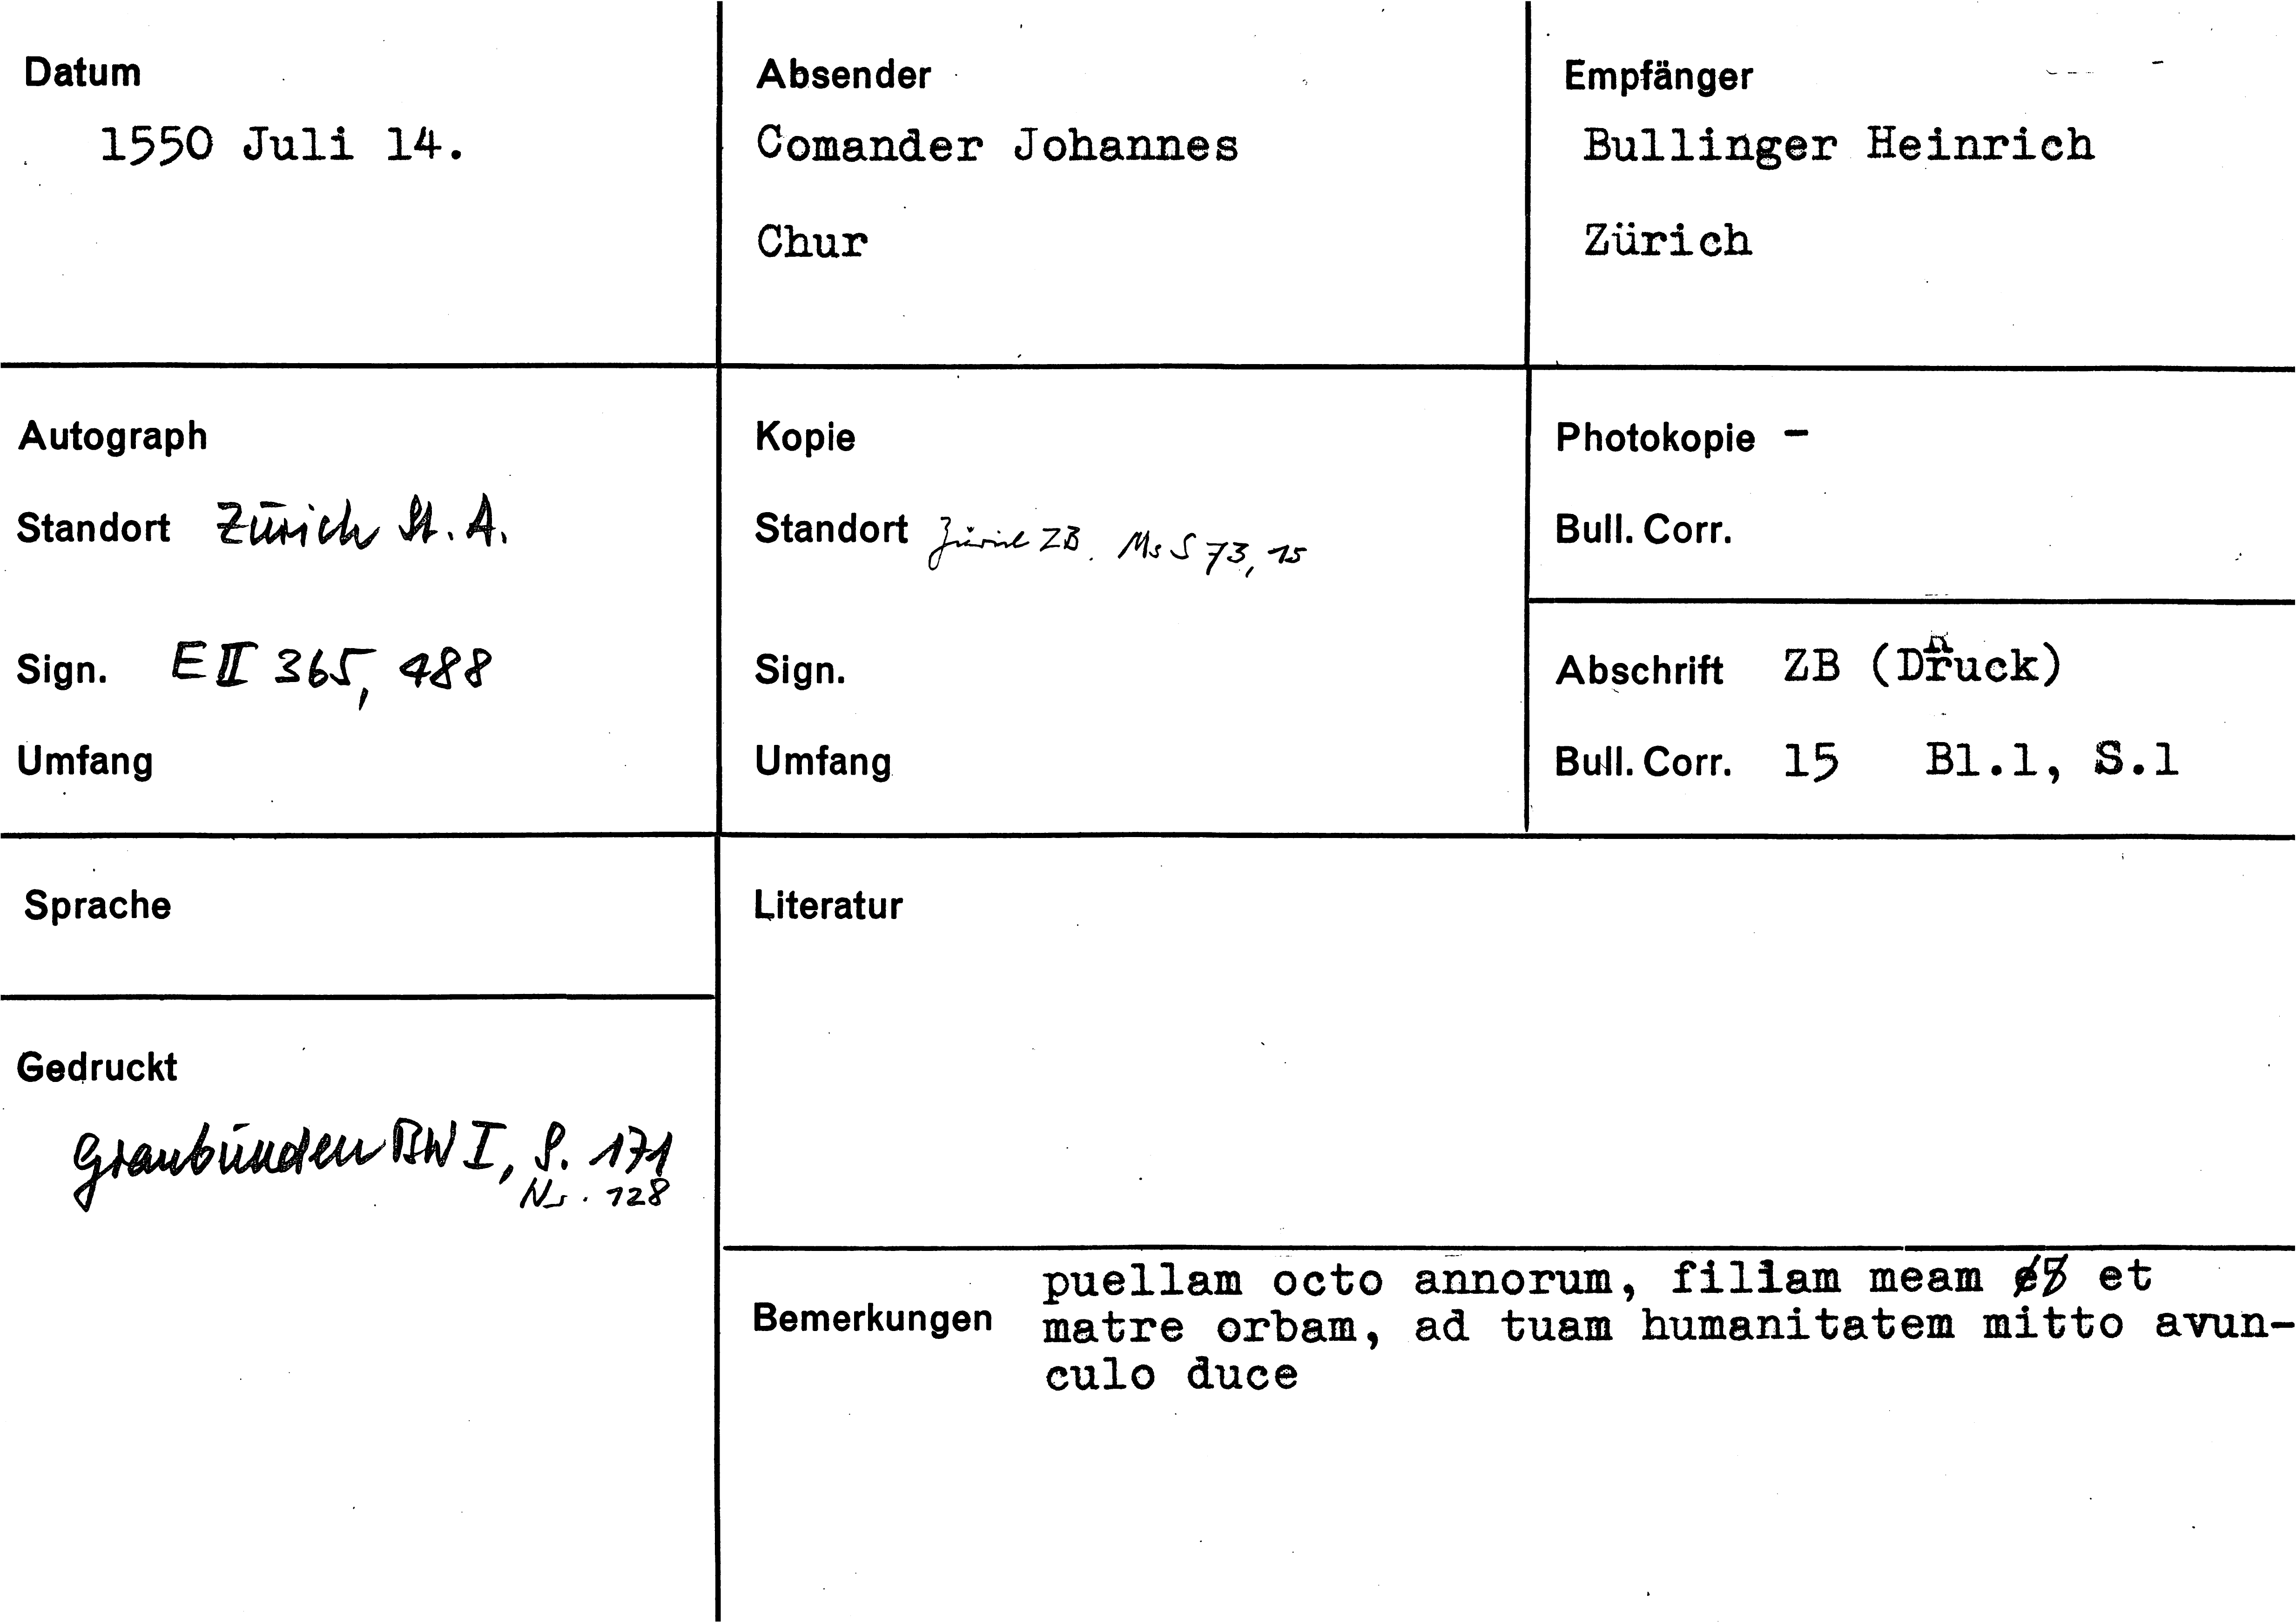 Datum
1550 Juli 14.
Absender
Comander Johannes
Chur
Empfänger
Bullinger Heinrich
Zürich
Autograph
Standort Zürich St. A.
Sign. E II 365, 488
Umfang
Kopie
Standort Zürich ZB. Ms S 73, 15
Sign.
Umfang
Photokopie -
Bull. Corr.
Abschrift ZB (Druck)
Bull. Corr. 15 Bl.1, S.1
Sprache
Gedruckt
Graubünden BW I, S. 171
Nr. 128
Literatur
Bemerkungen
puellam octo annorum, filiam meam et
matre orbam, ad tuam humanitatem mitto avun-
culo duce